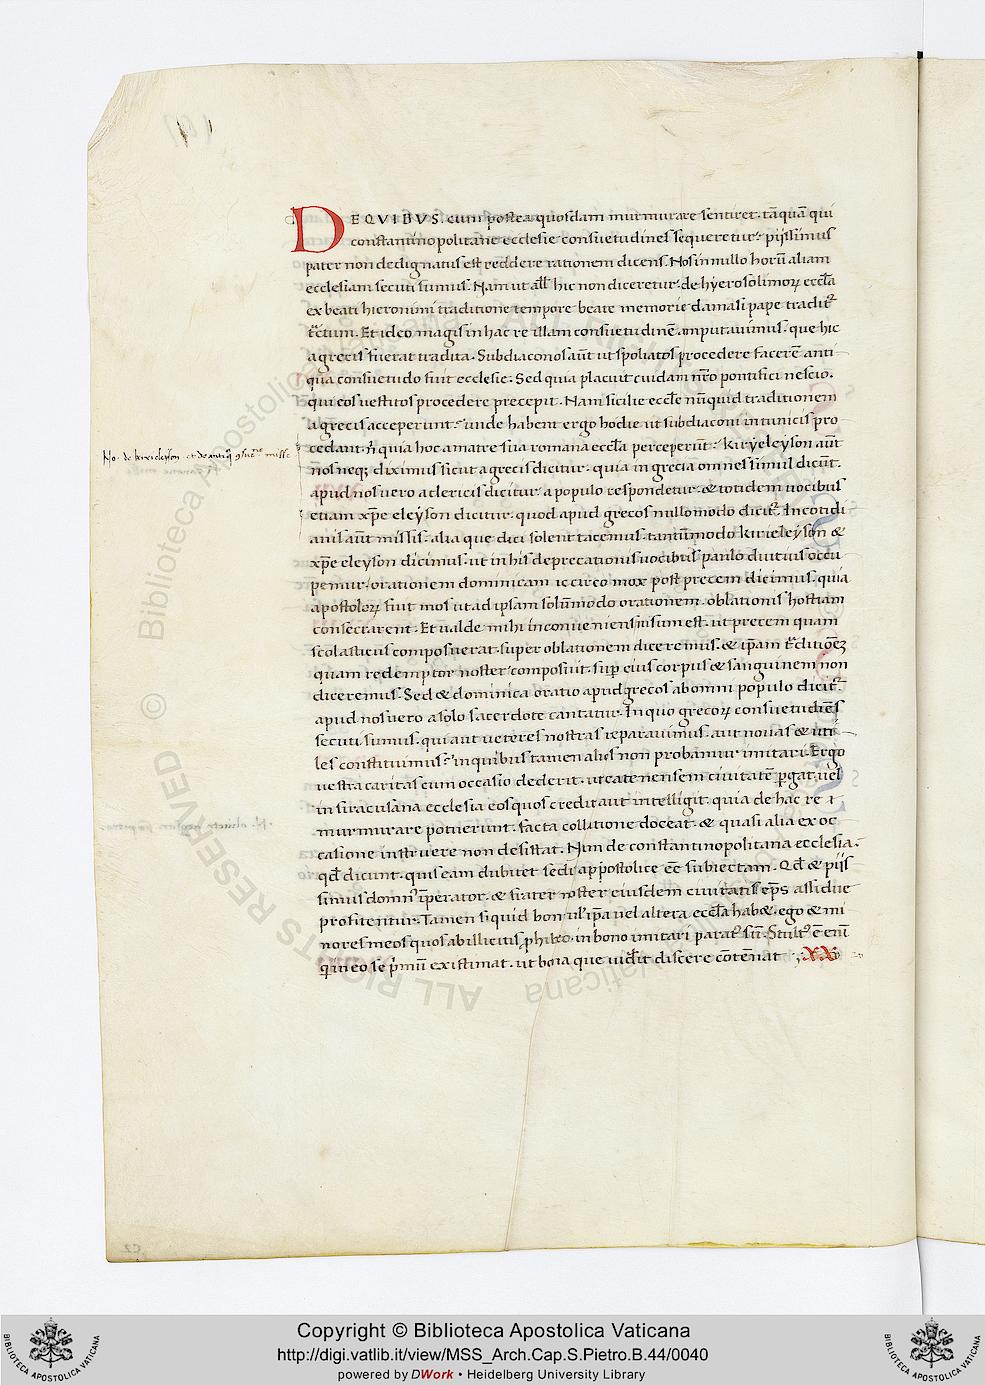 DEQVIBVS. cum postea quosdam murmurare sentiret. tāquā qui
constantinopolitane ecclesie consuetudines sequeretur. pijssimus
pater non dedignatus est reddere rationem dicens. Nos in nullo horū aliam
ecclesiam secuti sumus. Nam ut all̄ hic non diceretur. de hyerosolimoꝝ eccl̄a
ex beati hieronimi traditione tempore beate memorie damasi pape
Et ideo magis in hac re illam consuetudinē amputauimus. que hic
a grecis fuerat tradita. Subdiaconos aūt ut spoliatos procedere facerē anti
qua consuetudo fuit ecclesie. Sed quia placuit cuidam nr̄o pontifici nescio.
qui eos uestitos procedere precepit. Nam sicilie eccl̄e nūquid traditionem
a grecis acceperunt. unde habent ergo hodie ut subdiaconi in tunicis pro
cedant. n̄ quia hoc a matre sua romana eccl̄a perceperūt. Kiryeleyson aūt
No. de kirieleyson. et de
nos neqꝫ diximus sicut a grecis dicitur. quia in grecia omnes simul dicūt.
apud nos uero a clericis dicitur. a populo respondetur. & totidem uocibus
etiam xp̄e eleyson dicitur. quod apud grecos nullo modo dicit᷑. In cotidi
anis aūt missis. alia que dici solent tacemus. tantūmodo kirieleyson &
xp̄e eleyson dicimus. ut in his deprecationis uocibus paulo diutius occu
pemur. orationem dominicam iccirco mox post precem dicimus. quia
apostoloꝝ fuit mos ut ad ipsam solūmodo orationem. oblationis hostiam
consecrarent. Et ualde mihi inconueniens uisum est. ut precem quam
scolasticus composuerat. super oblationem diceremus. & ip̄am
quam redemptor noster composuit. sup̄ eius corpus & sanguinem non
diceremus. Sed & dominica oratio apud grecos ab omni populo dicit᷑.
apud nos uero a solo sacerdote cantatur. In quo grecoꝝ
secuti sumus. qui aut ueteres nostras reparauimus. aut nouas & uti
les constituimus. in quibus tamen alios non probamur imitari. Ergo
uestra caritas cum occasio dederit. ut catenensem ciuitatē ꝑgat. uel
in siracusana ecclesia eos quos credit aut intelligit. quia de hac re
murmurare potuerunt. facta collatione doceat. & quasi alia ex oc
casione instruere non desistat. Nan de constantinopolitana ecclesia.
qđ dicunt. quis eam dubitet sedi apostolice eē subiectam. Qđ & pijs
simus domn᷒ īperator. & frater noster eiusdem ciuitatis ep̄s assidue
profitentur. Tamen siquid boni ip̄a uel altera eccl̄a hab&. ego & mi
nores meos quos ab illicitis ꝓhibeo. in bono imitari parat᷒ sū. Stult᷒ ē enī
qui in eo se p̄mū existimat. ut bona que uiderit discere cōtēnat
Copyright © Biblioteca Apostolica Vaticana
http://digi.vatlib.it/view/MSS_Arch.Cap.S.Pietro.B.44/0040
powered by DWork • Heidelberg University Library